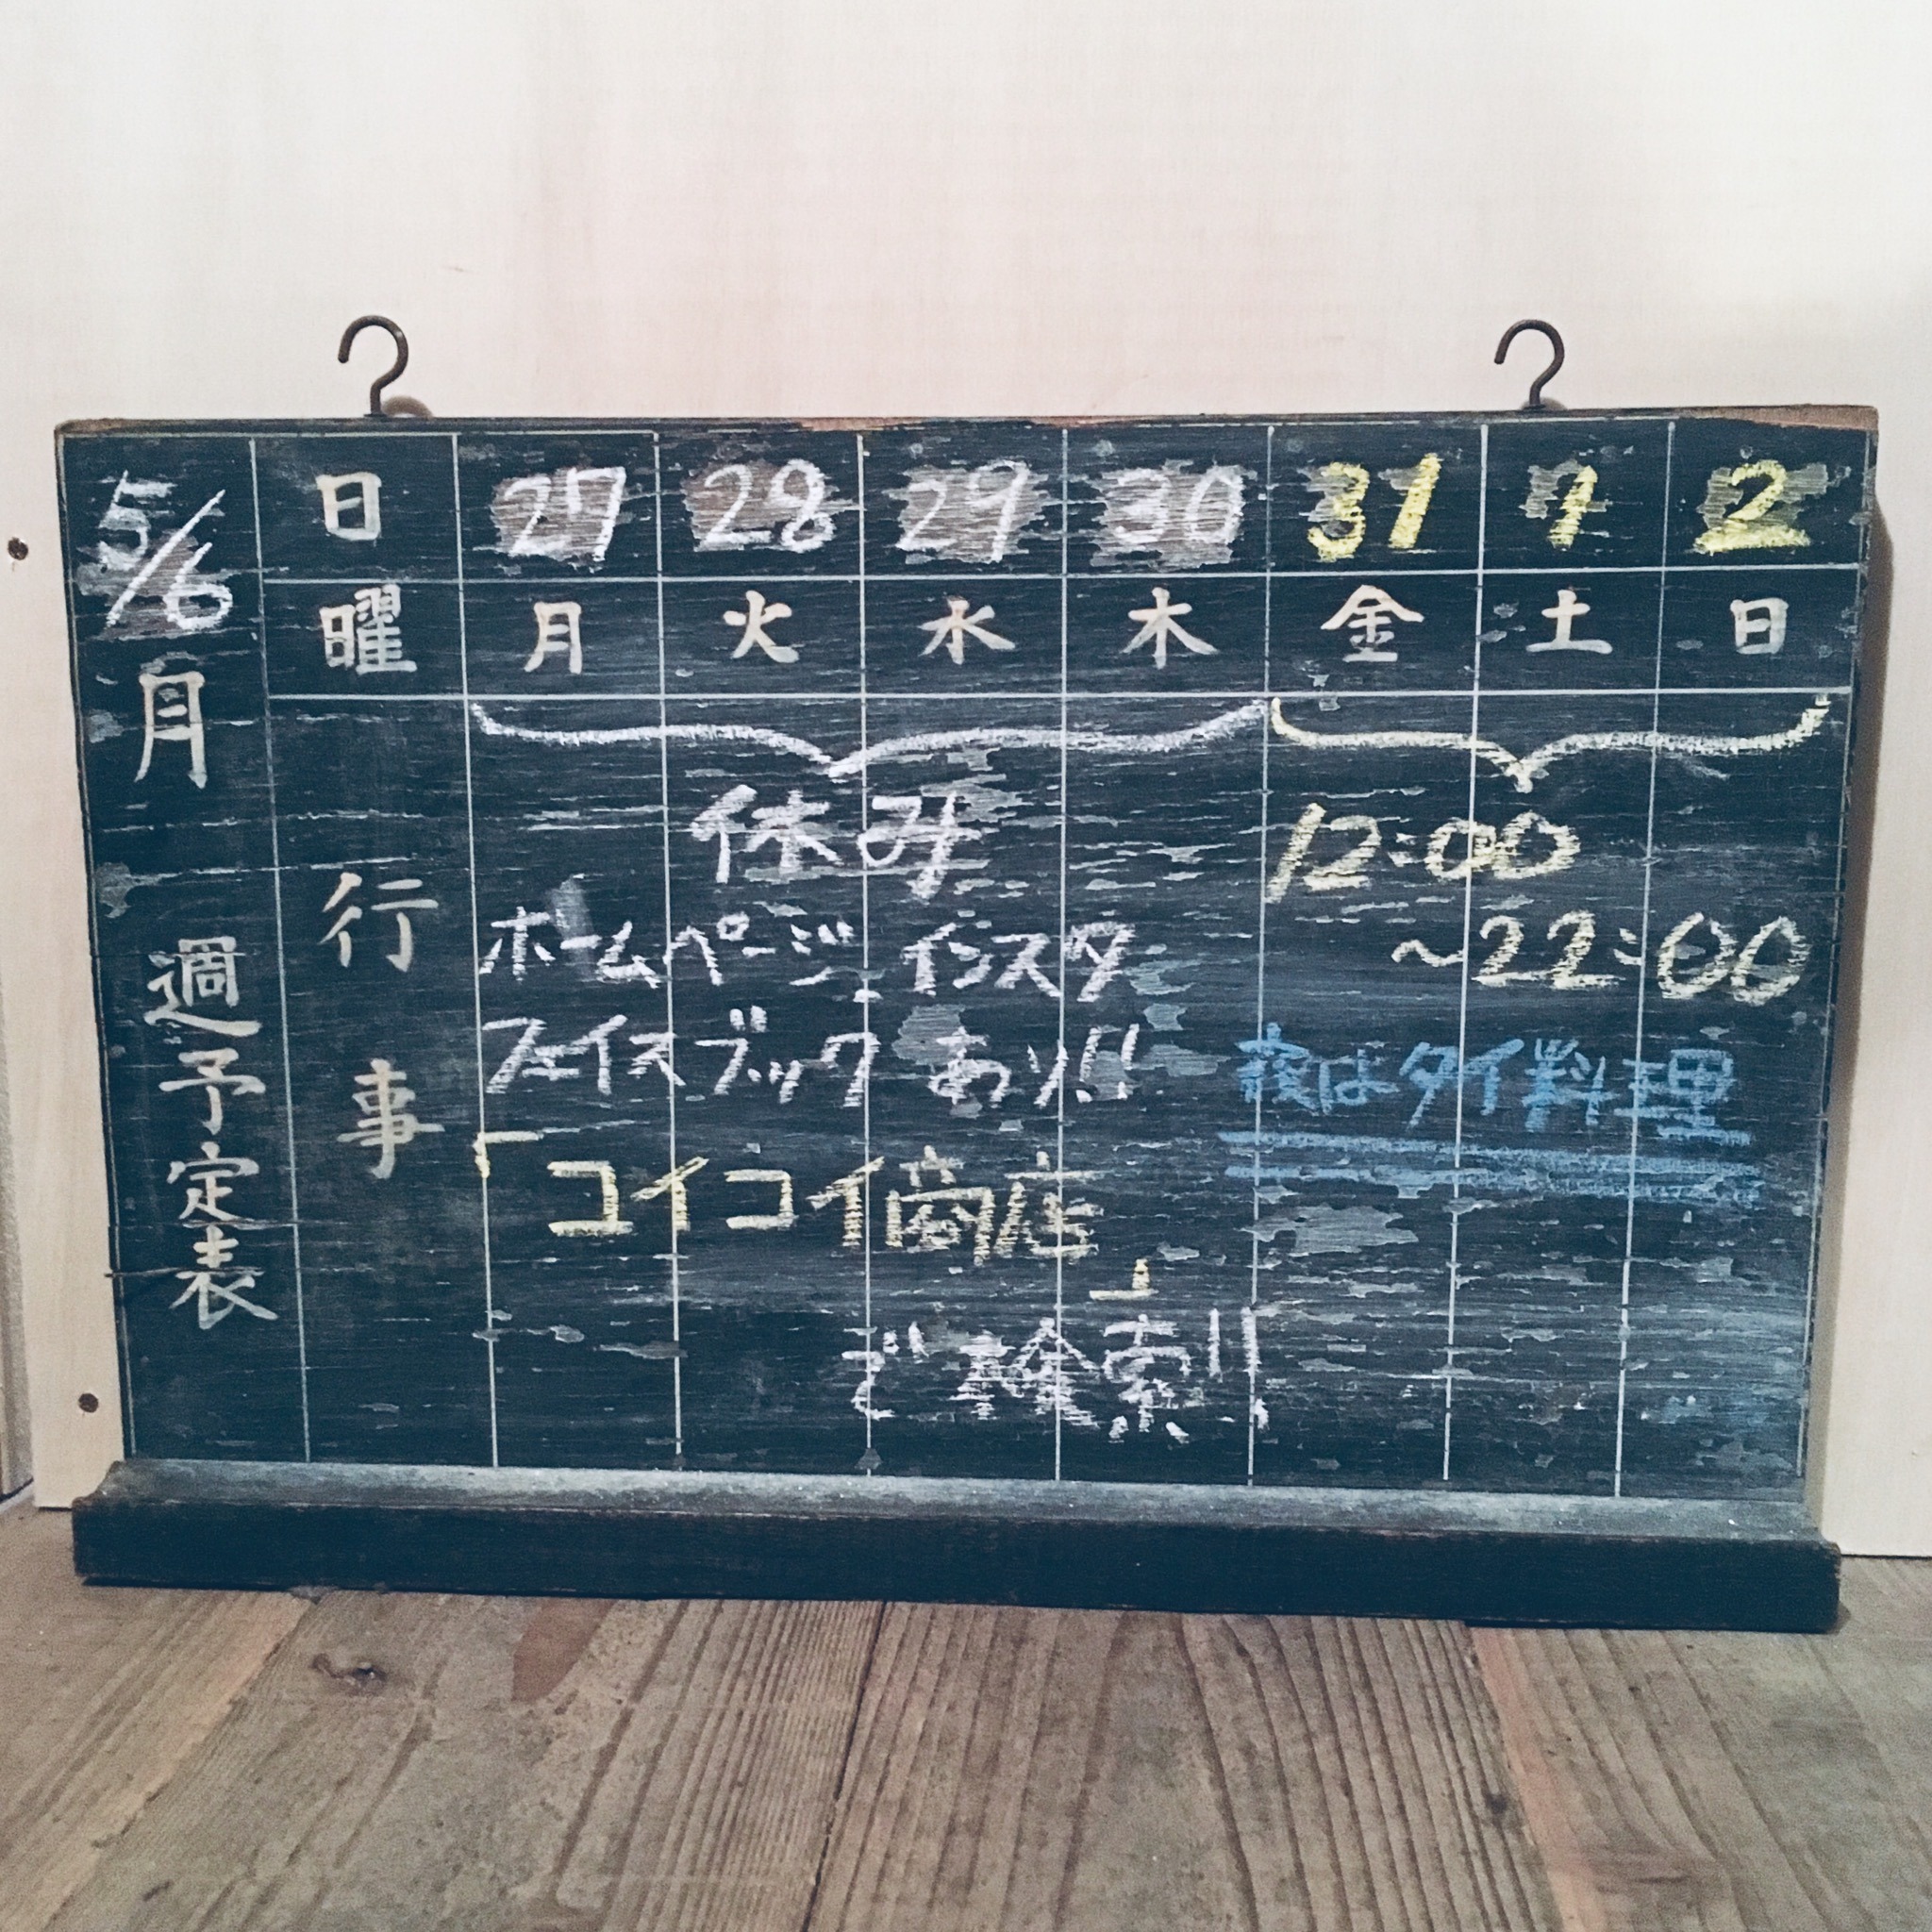 5/6
月
週予定表
日 27 28 29 30 31 1 2
曜 月 火 水 木 金 土 日
行事
休み
ホームページ インスタ
フェイスブック あり!!
「コイコイ商店」
で検索!!
12:00
~22:00
夜はタイ料理